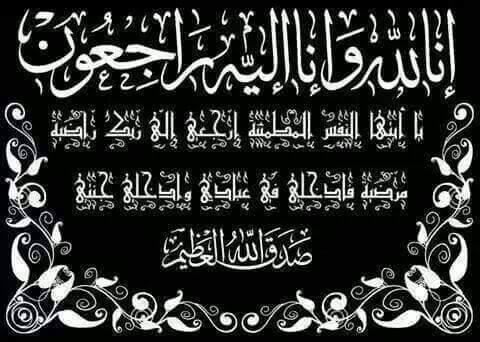 إنا لله وإنا إليه راجعون
يا أيتها النفس المطمئنة إرجعي إلى ربك راضية
مرضية فادخلي في عبادي وادخلي جنتي
صدق الله العظيم